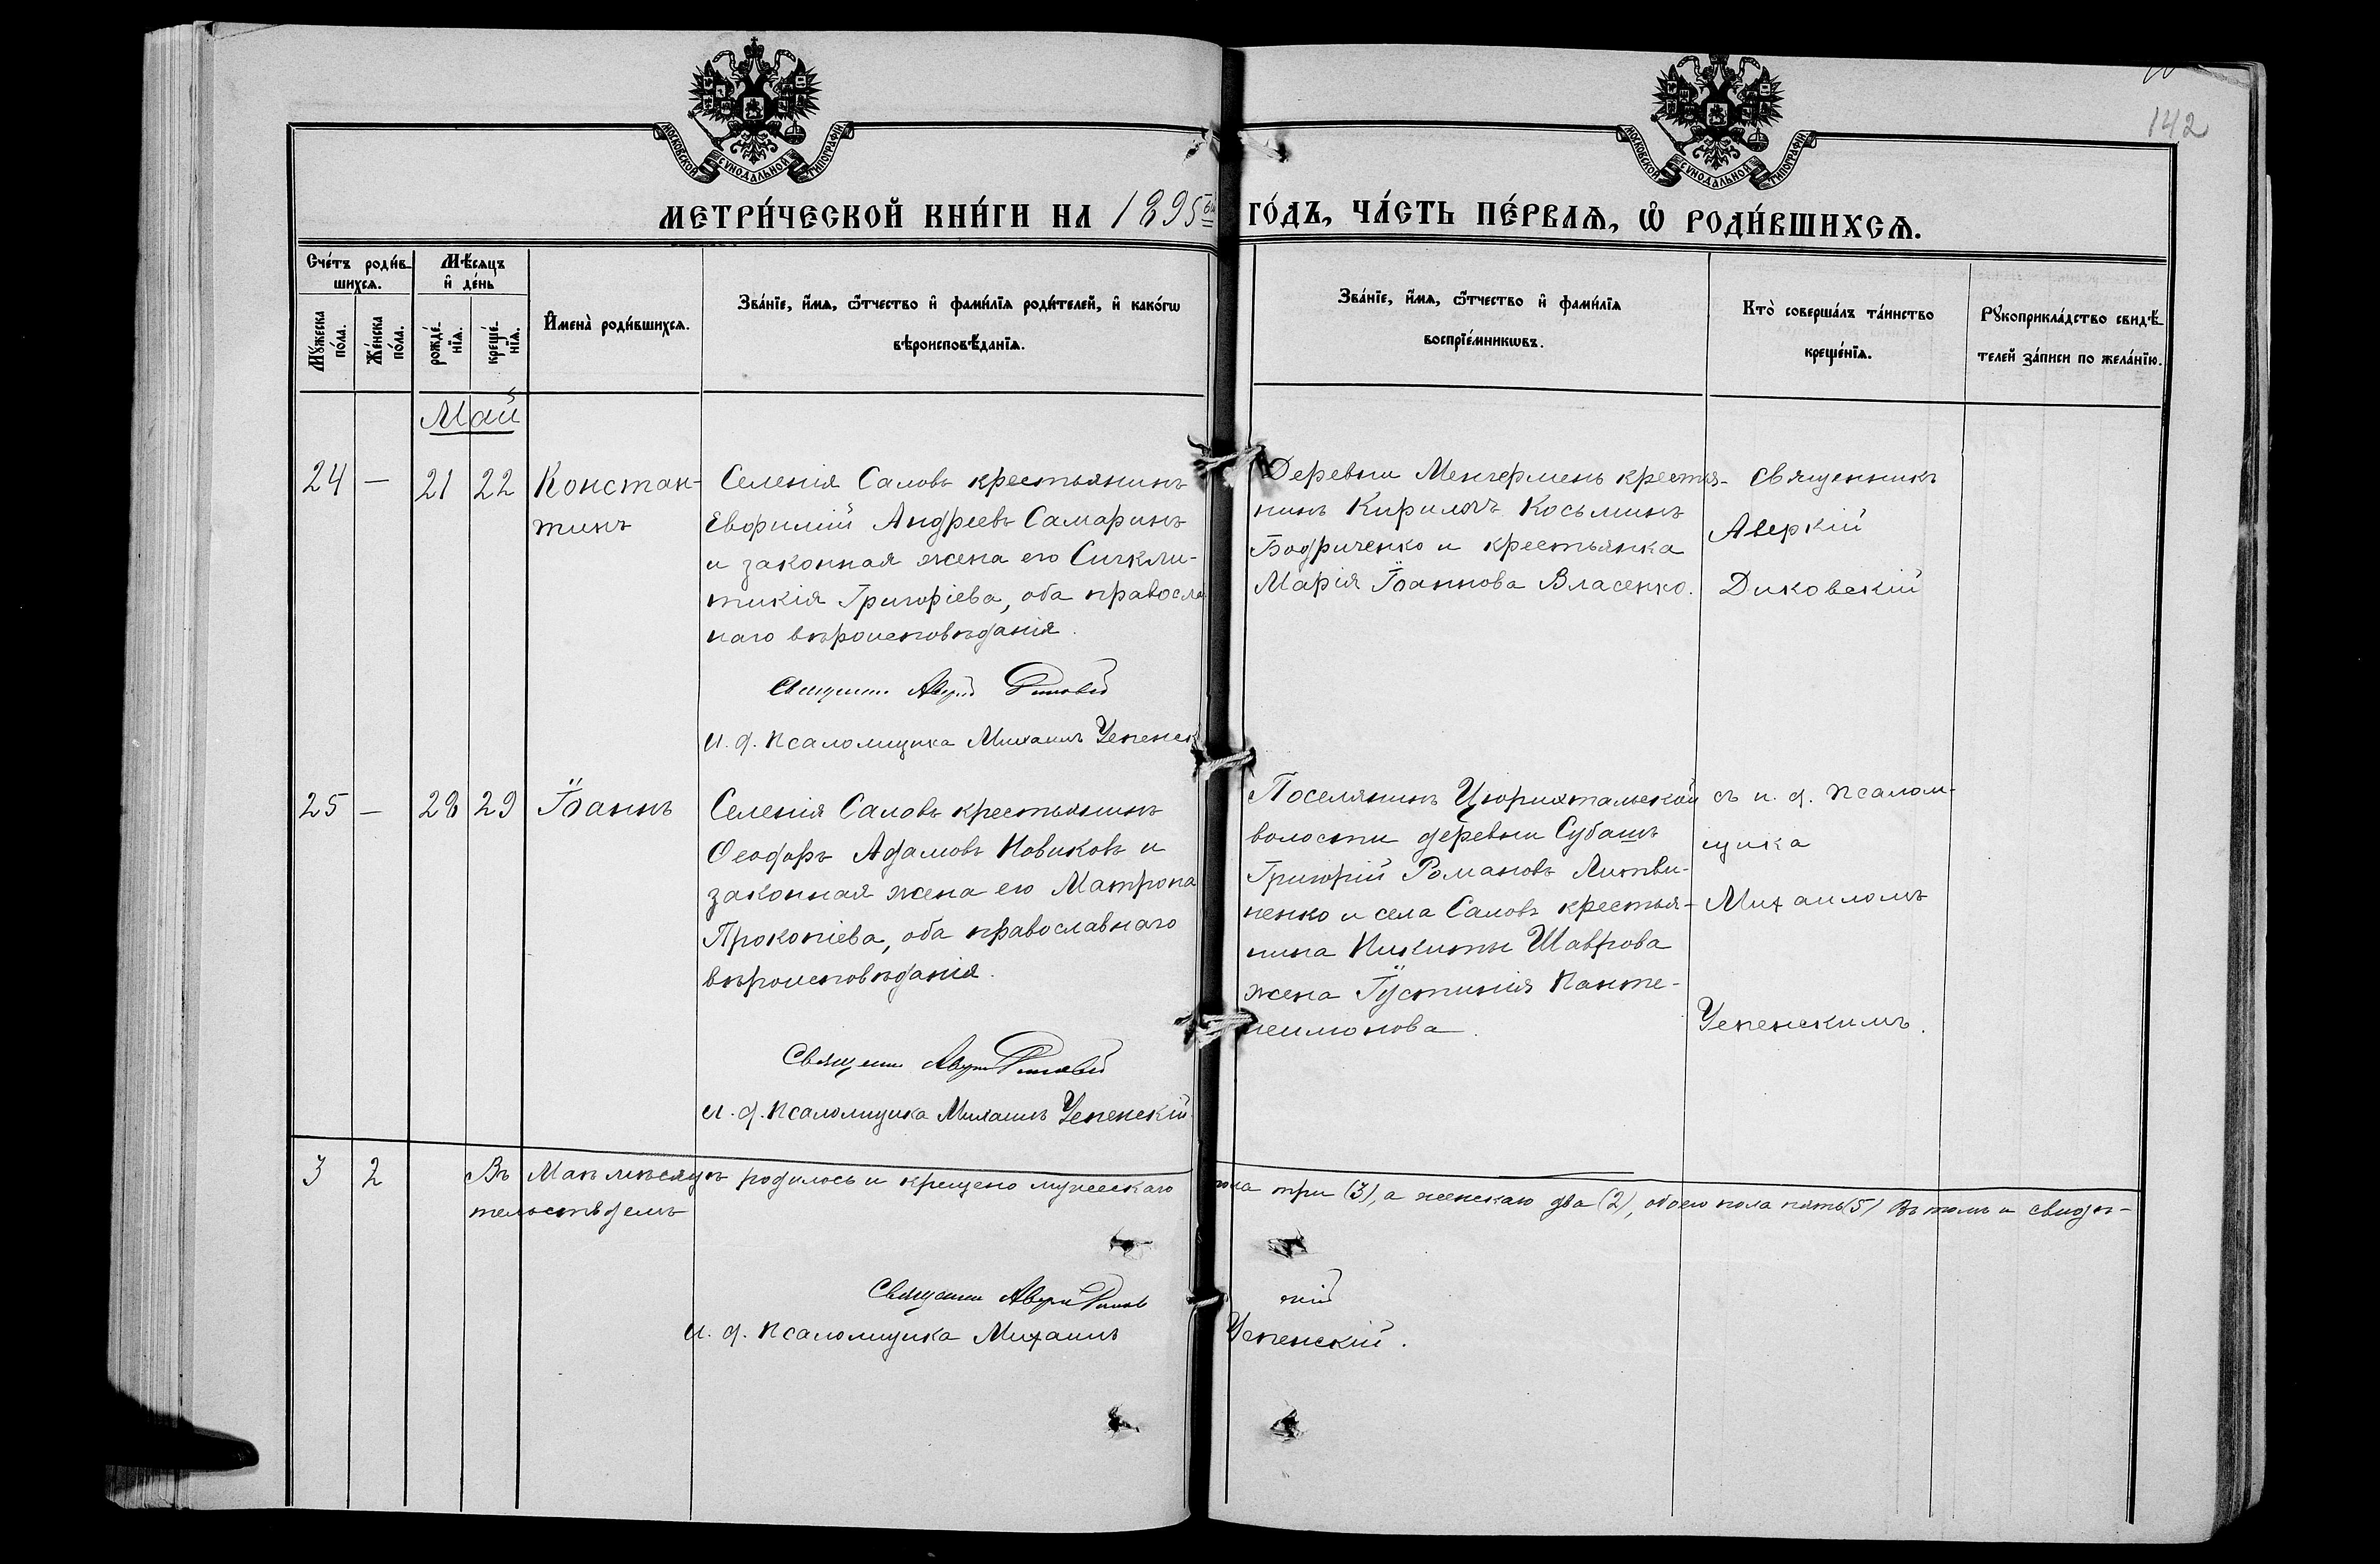 142
МОСКОВСКОЙ СѴНОДАЛЬНОЙ ТИПОГРАФІИ
МОСКОВСКОЙ СѴНОДАЛЬНОЙ ТИПОГРАФІИ
МЕТРИ́ЧЕСКОЙ КНИ́ГИ НА 1895 ГО́ДЪ, ЧА́СТЬ ПЕ́РВАѦ, Ѡ҆ РОДИ́ВШИХСѦ.
Сче́тъ роди́в-
шихсѧ.
Мꙋ́жеска по́ла.
Же́нска по́ла.
Мѣ́сѧцъ
и҆ де́нь
рожде́-
нїѧ.
креще́-
нїѧ.
И҆мена̀ роди́вшихсѧ.
Зва́нїе, и҆́мѧ, ѻ҆́тчество и҆ фами́лїѧ роди́телей, и҆ како́гѡ
вѣроисповѣ́данїѧ.
Зва́нїе, и҆́мѧ, ѻ҆́тчество и҆ фами́лїѧ
воспрїе́мникѡвъ.
Кто̀ соверша́лъ та́инство
креще́нїѧ.
Рꙋкоприкла́дство свидѣ́-
телей за́писи по жела́нїю.
Май
24 — 21 22
Констан-
тинъ
Селенія Саловъ крестьянинъ
Евфимій Андреевъ Самаринъ
и законная жена его Сигкли-
тикія Григоріева, оба правосла
наго вѣроисповѣданія.
Священн. Авер
И. д. псаломщика Михаилъ Успенск
Деревни Менгермень крестья-
нинъ Кириллъ Косьминъ
Бодриченко и крестьянка
Марія Іоаннова Власенко.
Священникъ
Аверкій
Диковскій
25 — 28 29
Іоаннъ
Селенія Саловъ крестьянинъ
Ѳеодоръ Адамовъ Новиковъ и
законная жена его Матрона
Прокопіева, оба православнаго
вѣроисповѣданія.
Священн. Авер
И. д. псаломщика Михаилъ Успенскій
Поселянинъ Цюрихтальской
волости деревни Субашъ
Григорій Романовъ Литви-
ненко и села Саловъ крестья-
нина Никиты Шаврова
жена Іустинія Панте-
леимонова.
съ и. д. псалом-
щика
Михаиломъ
Успенскимъ.
3 2 Въ Маѣ мѣсяцѣ родилось и крещено мужескаго пола три (3), а женскаго два (2), обоего пола пять (5) Въ томъ и свидѣ-
тельствуемъ
Священн. Авер кій
И. д. псаломщика Михаилъ Успенскій.